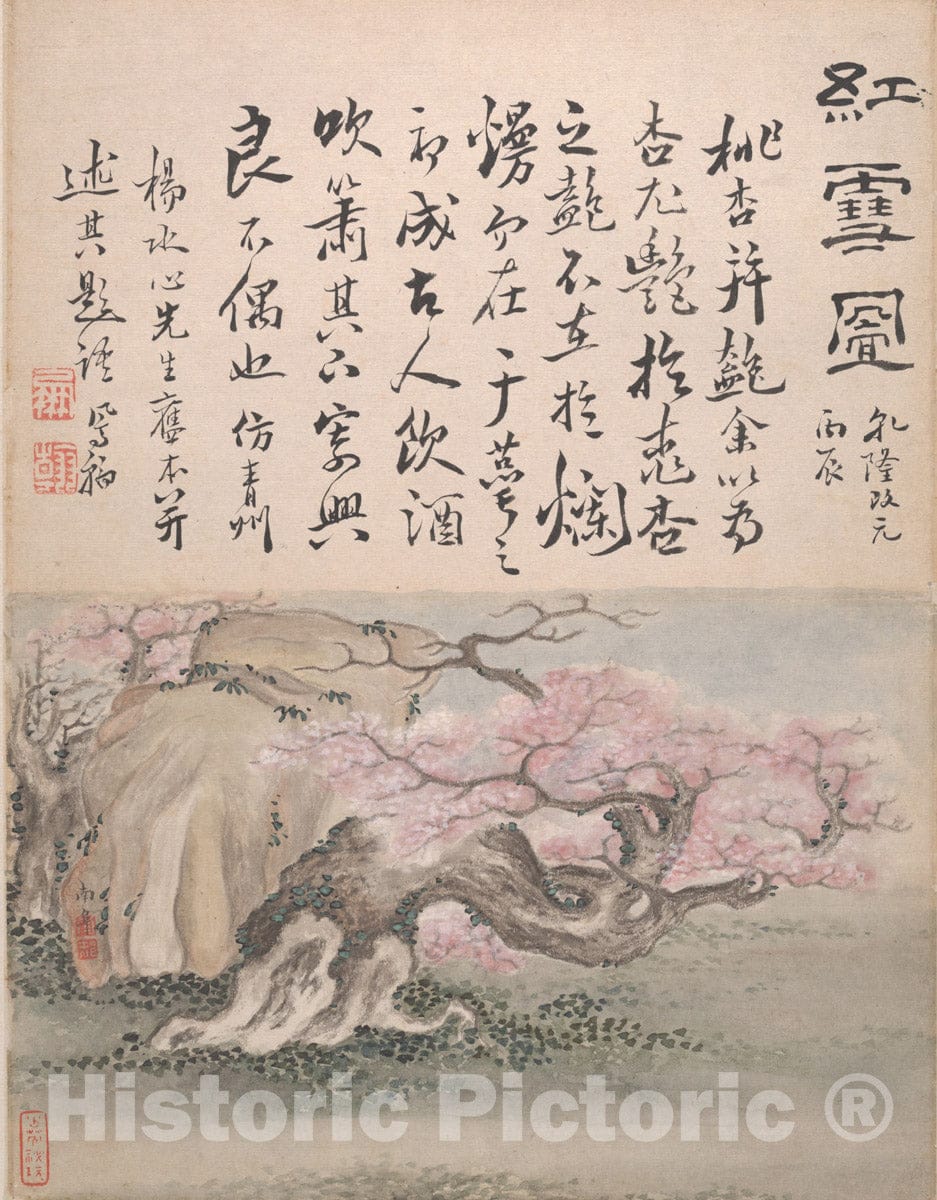 紅雪圖
乾隆改元
丙辰
桃杏并艷余以為
杏尤艷於桃杏
之艷不在於爛
熳而在于之
初成古人飲酒
吹簫其下寄興
良不偶也仿青州
楊水心先生舊本并
述其題語
南阜
Historic Pictoric ®